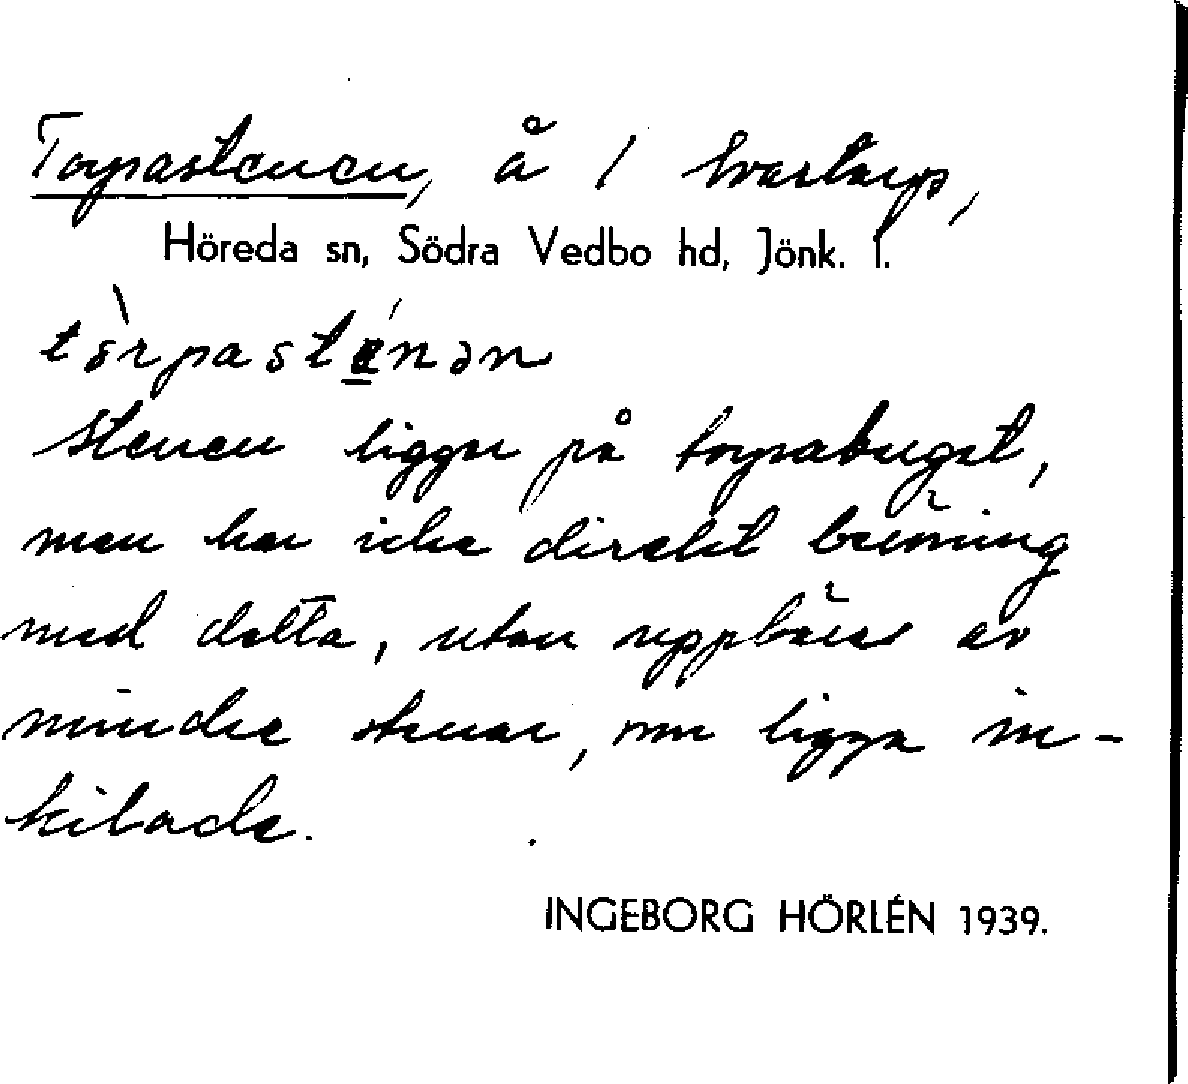 Torpastenen, å 1
Höreda sn, Södra Vedbo hd, Jönk. l.
tòrpasténən
Stenen ligger på torpaberget,
men har icke direkt beröring
med detta, utan uppbäres av
mindre stenar, som ligga in-
kilade.
INGEBORG HÖRLÉN 1939.